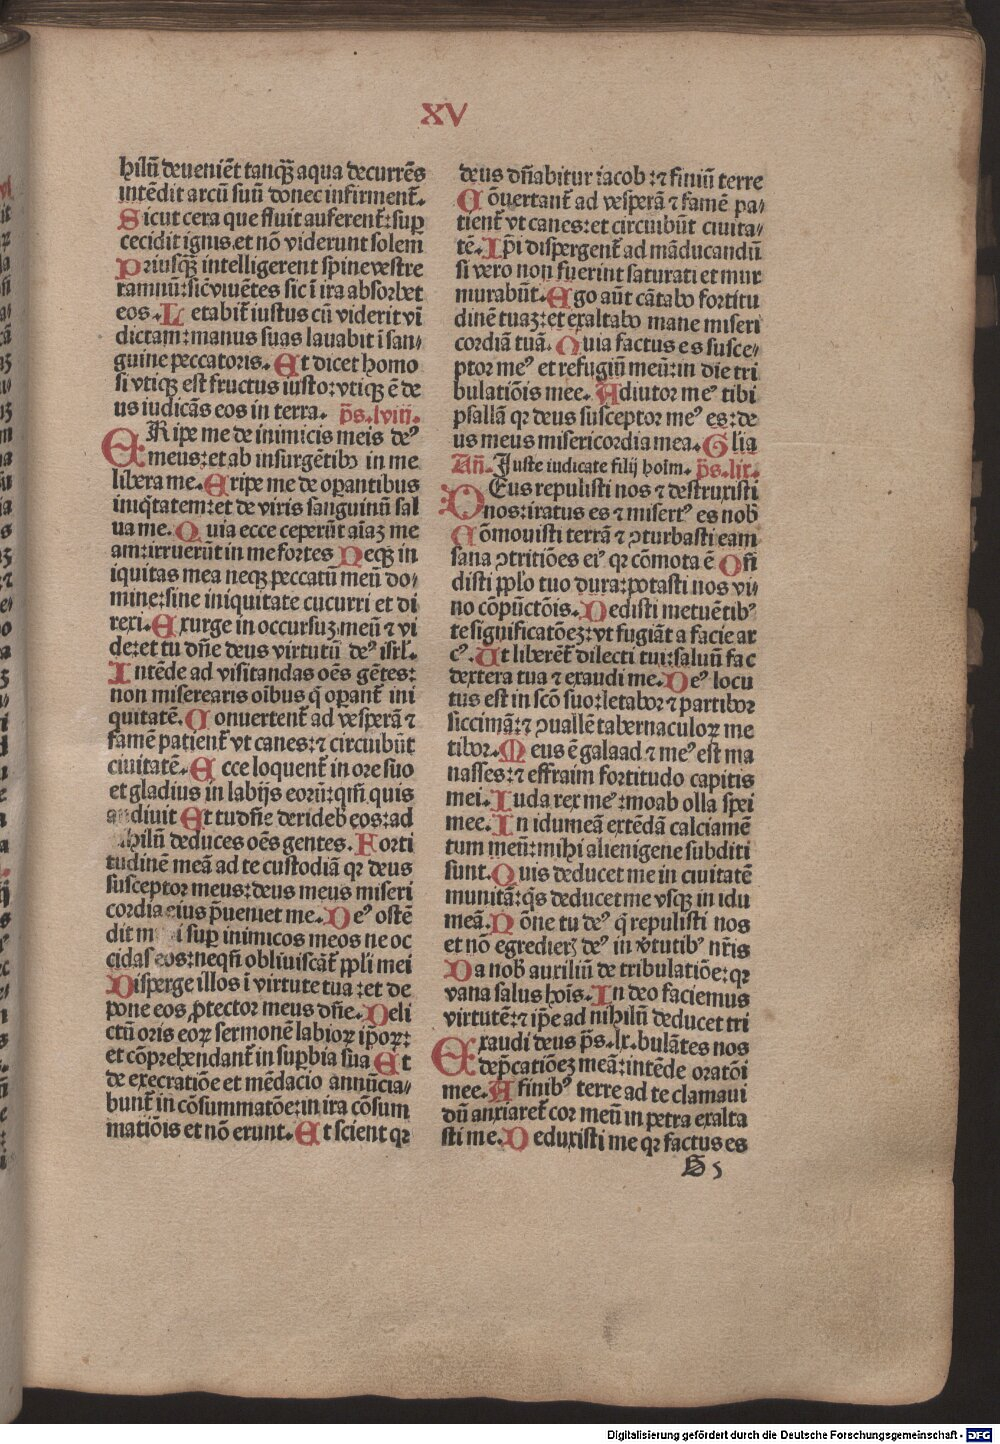 XV
hilū deueniēt tanqꝫ aqua decurrēs
intēdit arcū suū donec infirment̄.
Sicut cera que fluit auferent̄: sup̄
cecidit ignis.et nō viderunt solem
Priusqꝫ intelligerent spine vestre
ramnū: sic̄ viuētes sic ī ira absorbet
eos. Letabit̄ iustus cū viderit vī
dictam: manus suas lauabit ī san⸗
guine peccatoris. Et dicet homo
si vtiqꝫ est fructus iusto: vtiqꝫ ē de
us iudicās eos in terra. p̄s. lviij.
ERipe me de inimicis meis deꝰ
meus: et ab insurgētibꝰ in me
libera me. Eripe me de oꝑantibus
iniq̇tatem: et de viris sanguinū sal
ua me. Quia ecce ceperūt aīaꝫ me
am: irruerūt in me fortes Neqꝫ in
iquitas mea neqꝫ peccatū meū do⸗
mine: sine iniquitate cucurri et di
rexi. Exurge in occursuꝫ meū ⁊ vi
de: et tu dn̄e deus virtutū deꝰ isrl̄.
Intēde ad visitandas oēs gētes:
non miserearis oībus q̇ oꝑant̄ ini
quitatē. Conuertent̄ ad vesperā ⁊
famē patient̄ vt canes: ⁊ circuibūt
ciuitatē. Ecce loquent̄ in ore suo
et gladius in labijs eorū: qm̄ quis
audiuit Et tu dn̄e derideb̄ eos: ad
nihilū deduces oēs gentes. Forti
tudinē meā ad te custodiā qꝛ deus
susceptor meus: deus meus miseri
cordia eius p̄ueniet me. Deꝰ ostē
dit m i suꝑ inimicos meos ne oc
cidas eos: neqn̄ obliuiscāt̄ ppl̄i mei
Disperge illos ī virtute tua: et de
pone eos ꝓtector meus dn̄e. Deli
ctū oris eoꝝ sermonē labioꝝ ip̄oꝝ:
et cōprehendant̄ in suꝑbia sua Et
de execratiōe et mēdacio annūcia⸗
bunt̄ in cōsummatōe: in ira cōsum
matiōis et nō erunt. Et scient qꝛ
deus dn̄abitur iacob: ⁊ finiū terre
Cōuertant̄ ad vesperā ⁊ famē pa⸗
tient̄ vt canes: et circuibūt ciuita⸗
tē. Ip̄i dispergent̄ ad māducandū
si vero non fuerint saturati et mur
murabūt. Ego aūt cātabo fortitu
dinē tuaꝫ: et exaltabo mane miseri
cordiā tuā. Quia factus es susce⸗
ptor meꝰ et refugiū meū: in die tri
bulatiōis mee. Adiutor meꝰ tibi
psallā qꝛ deus susceptor meꝰ es: de
us meus misericordia mea. Glīa
Añ. Juste iudicate filij hoīm. p̄s. lix.
DEus repulisti nos ⁊ destruxisti
nos: iratus es ⁊ misertꝰ es nob̄
Cōmouisti terrā ⁊ ꝯturbasti eam
sana ꝯtritiōes eiꝰ qꝛ cōmota ē Oñ
disti ppl̄o tuo dura: potasti nos vi⸗
no cōpūctōis. Dedisti metuētibꝰ
te significatōeꝫ: vt fugiāt a facie ar
cꝰ. Ut liberēt̄ dilecti tui: saluū fac
dextera tua ⁊ exaudi me. Deꝰ locu
tus est in scō suo: letabor ⁊ partibor
siccimā: ⁊ ꝯuallē tabernaculoꝝ me
tibor. Meus ē galaad ⁊ meꝰ est ma
nasses: ⁊ effraim fortitudo capitis
mei. Iuda rex meꝰ: moab olla spei
mee. In idumeā extēdā calciamē
tum meū: mihi alienigene subditi
sunt. Quis deducet me in ciuitatē
munitā: q̇s deducet me vsqꝫ in idu
meā. Nōne tu deꝰ q̇ repulisti nos
et nō egredierꝫ deꝰ in v̄tutibꝰ nr̄is
Da nob̄ auxiliū de tribulatiōe: qꝛ
vana salus hoīs. In deo faciemus
virtutē: ⁊ ip̄e ad nihilū deducet tri
Exaudi deus p̄s. lx. bulātes nos
dep̄catiōeꝫ meā: intēde oratōi
mee. A finibꝰ terre ad te clamaui
dū anxiaret̄ cor meū in petra exalta
sti me. Deduxisti me qꝛ factus es
Digitalisierung gefördert durch die Deutsche Forschungsgemeinschaft - DFG